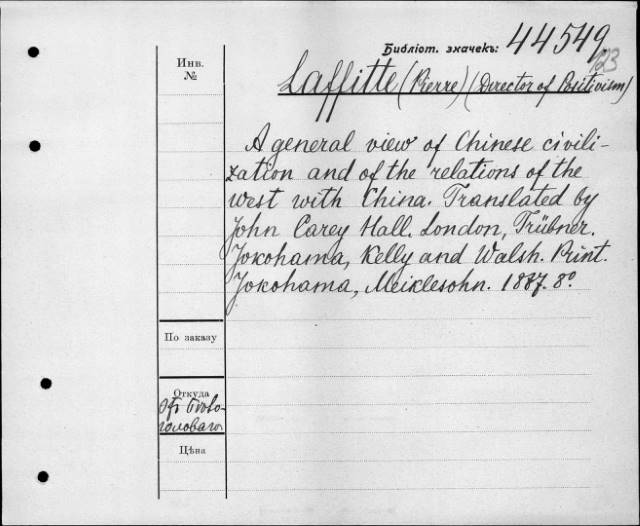 Библіот. значекъ: 44549
123
Инв.
№
Laffitte (Pierre) (Director of Positivism)
A general view of Chinese civili-
zation and of the relations of the
west with China. Translated by
John Carey Hall. London, Trübner.
Yokohama, Kelly and Walsh. Print.
Yokohama, Meiklesohn. 1887. 8º.
По заказу
Откуда
Отъ
головаго.
Цѣна